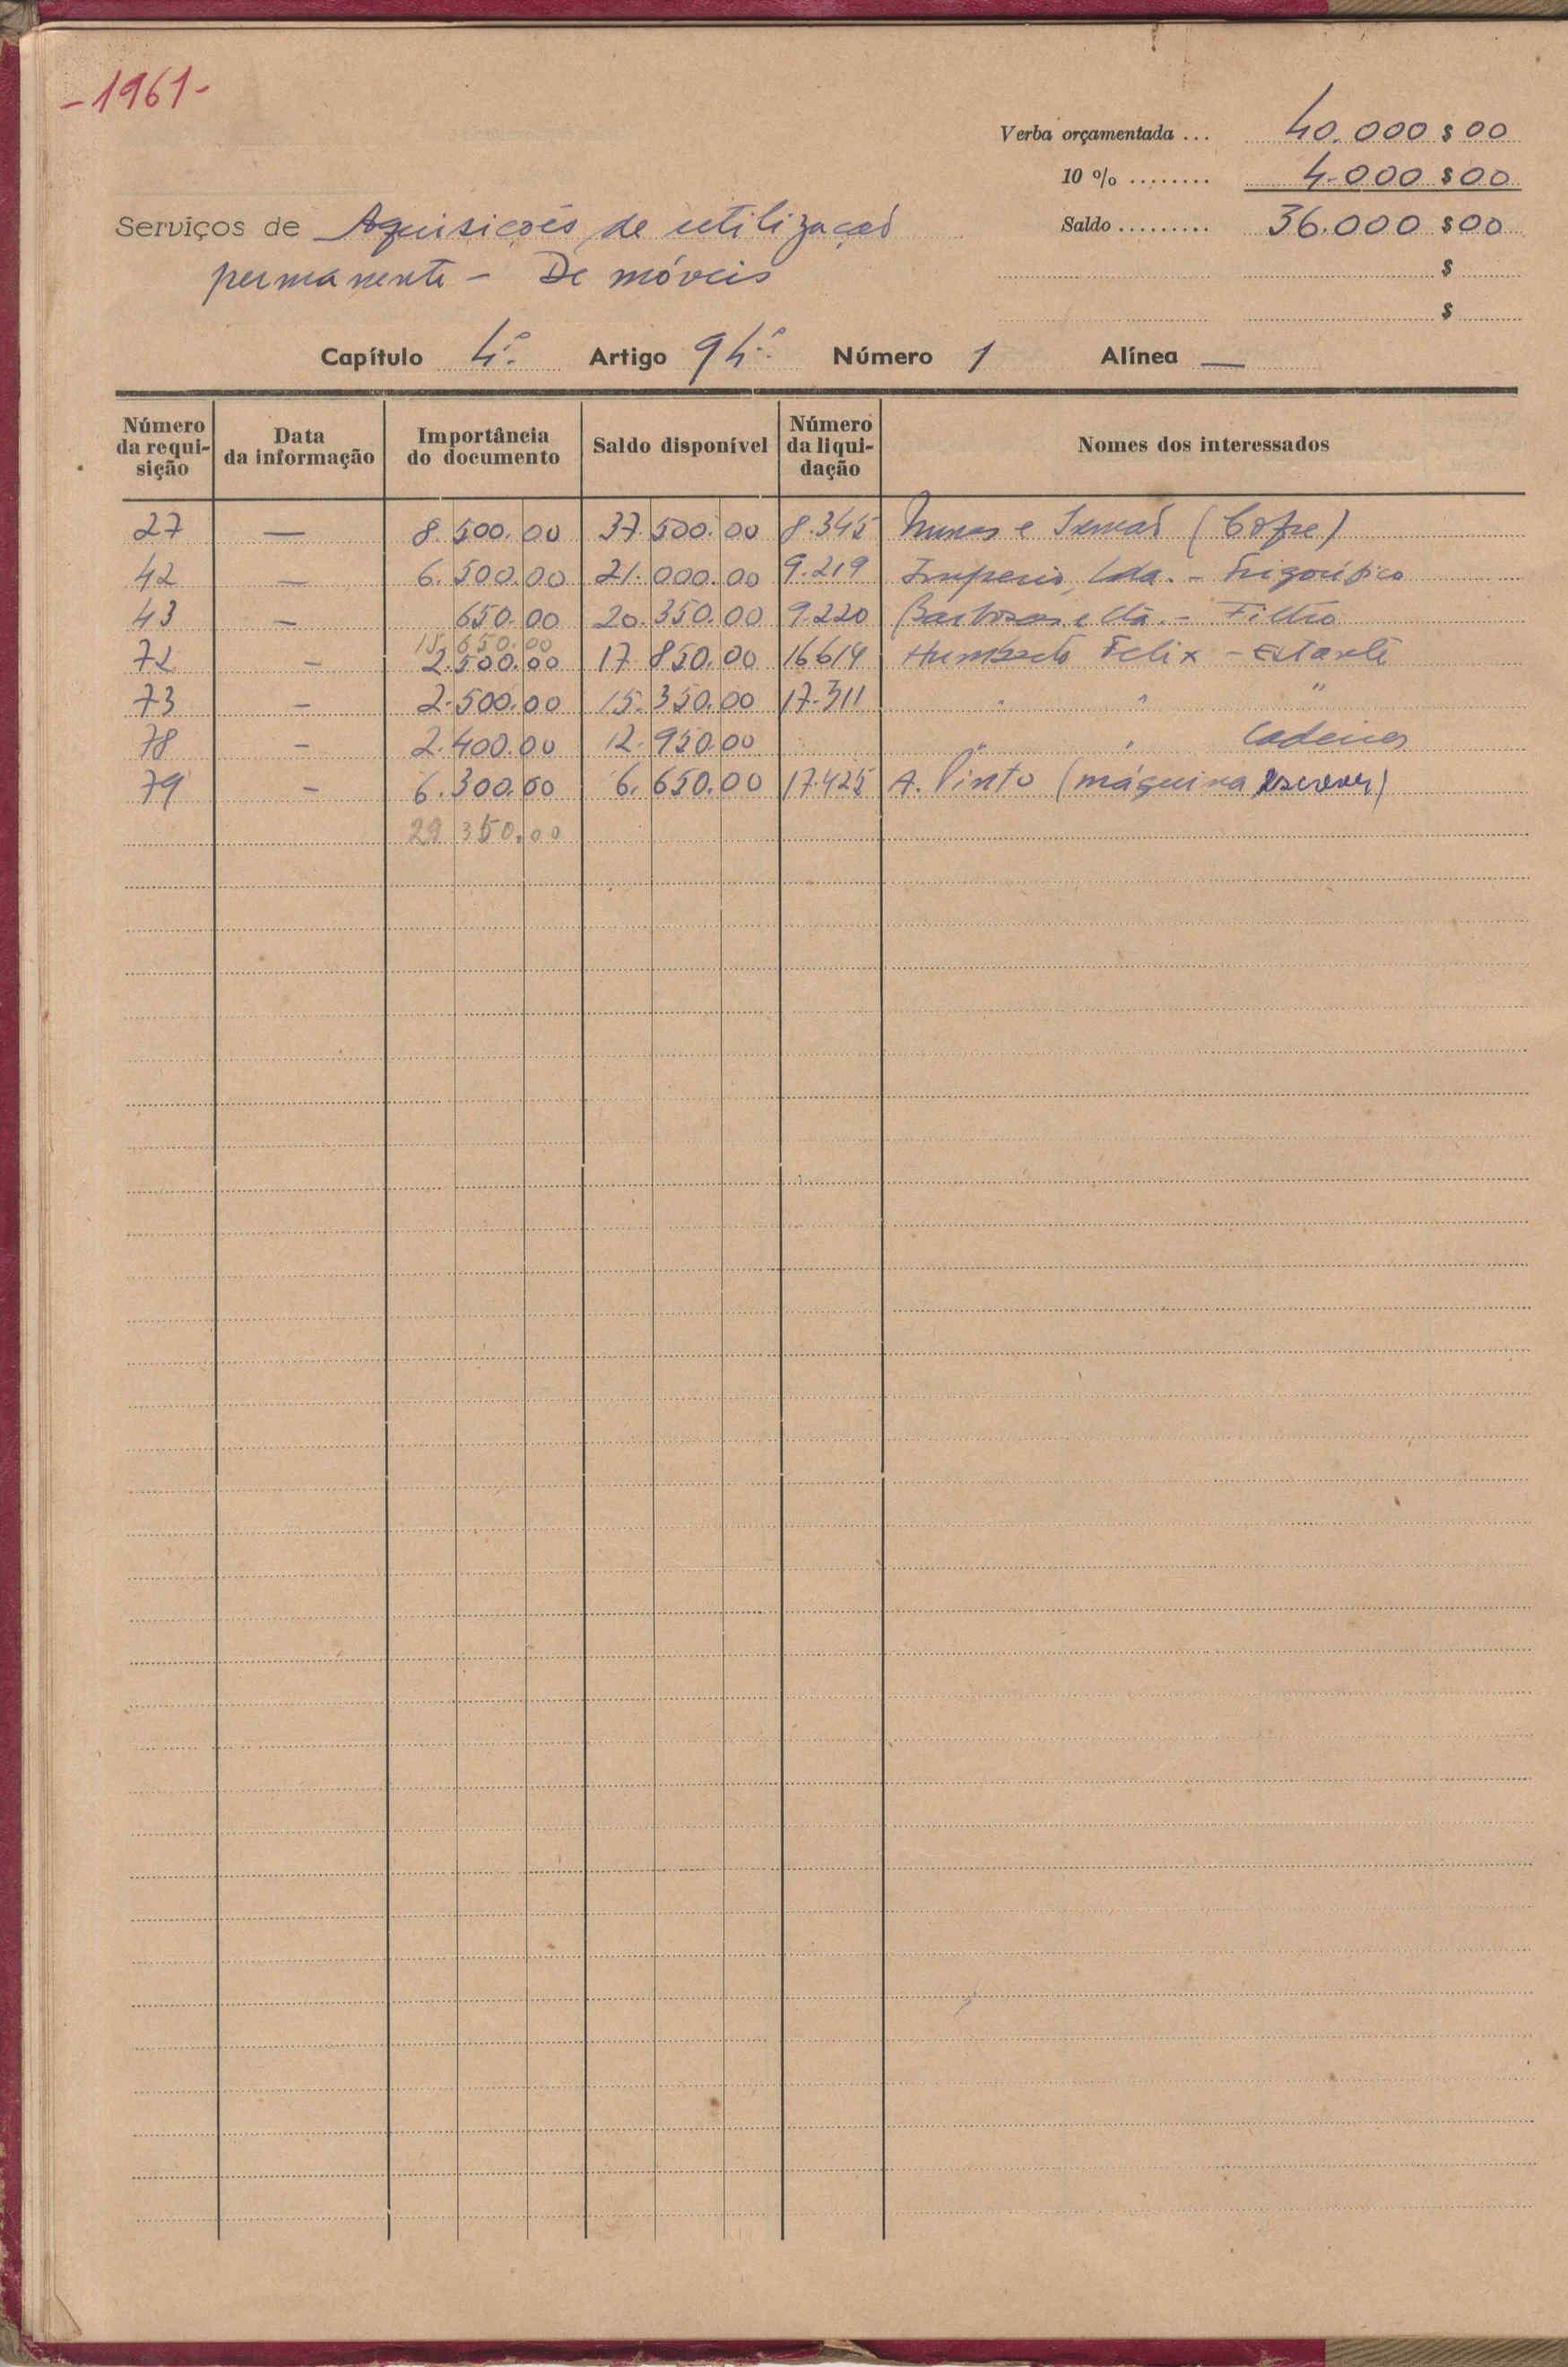 -1961-
Verba orçamentada ... 40.000 $ 00
10 % ........ 4.000 $ 00
Serviços de Aquisições de utilização
Saldo ......... 36.000 $ 00
permanente - De móveis
$
$
Capítulo 4.º Artigo 94.º Número 1 Alínea —
Número da requi-sição Data da informação Importância do documento Saldo disponível Número da liqui-dação Nomes dos interessados
27 — 8.500.00 37.500.00 8.345 Nunes e Irmão (Cofre)
42 — 6.500.00 21.000.00 9.219 Imperio, Lda. - Frigorifico
43 — 650.00 20.350.00 9.220 Barbosa e Cta. - Filtro
15.650.00
72 - 2.500.00 17.850.00 16614 Humberto Felix - Estante
73 - 2.500.00 15.350.00 17.311 " " "
78 - 2.400.00 12.950.00 " " Cadeiras
79 - 6.300.00 6.650.00 17.425 A. Pinto (máquina escrever)
29.350.00